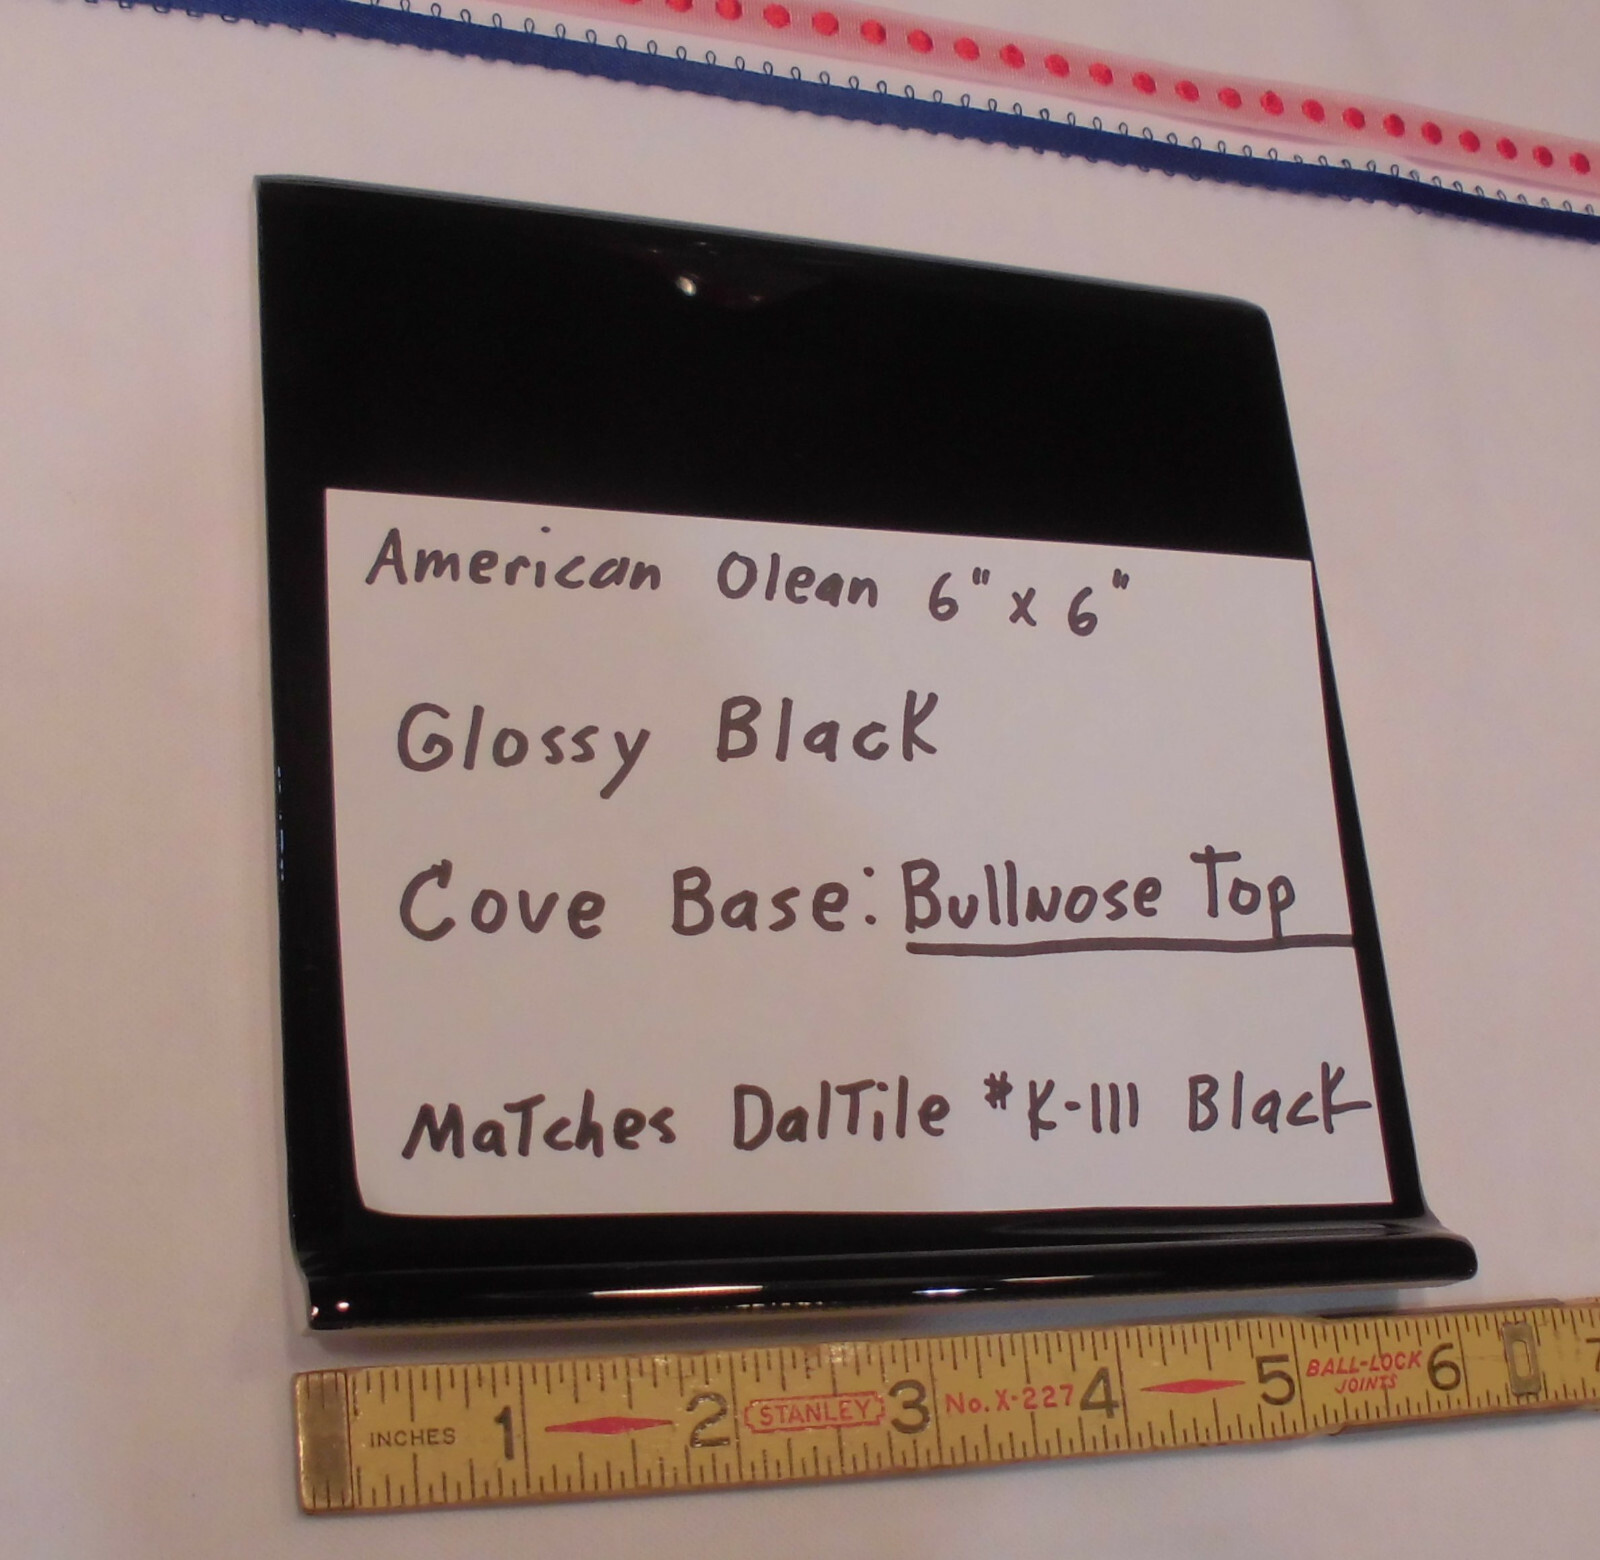 American Olean 6" x 6"
Glossy Black
Cove Base: Bullnose Top
Matches DalTile #K-111 Black
INCHES 1 2 STANLEY 3 No. X-227 4 5 BALL-LOCK JOINTS 6 7